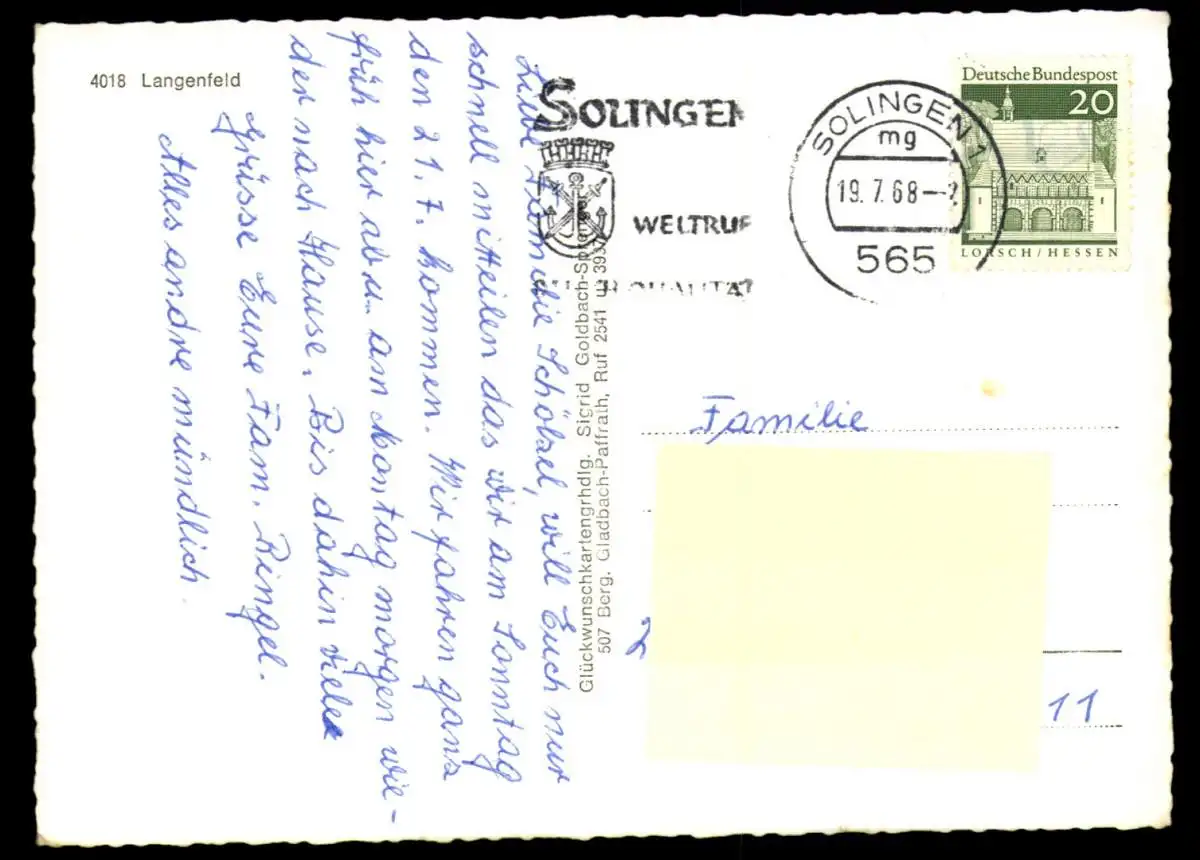 4018 Langenfeld
Liebe Familie Schölzel, will Euch nur
schnell mitteilen das wir am Sonntag
den 21. 7. kommen. Wir fahren ganz
früh hier ab u. am Montag morgen wie-
der nach Hause. Bis dahin viele
Grüsse Eure Fam. Ringel.
Alles andre mündlich.
Glückwunschkartengrhdlg. Sigrid Goldbach-
507 Berg. Gladbach-Paffrath, Ruf 2541 u. 393
SOLINGEN
WELTRUF
QUALITÄT
SOLINGEN 1
mg
19.7.68
565
Deutsche Bundespost
20
LORSCH/HESSEN
Familie
11